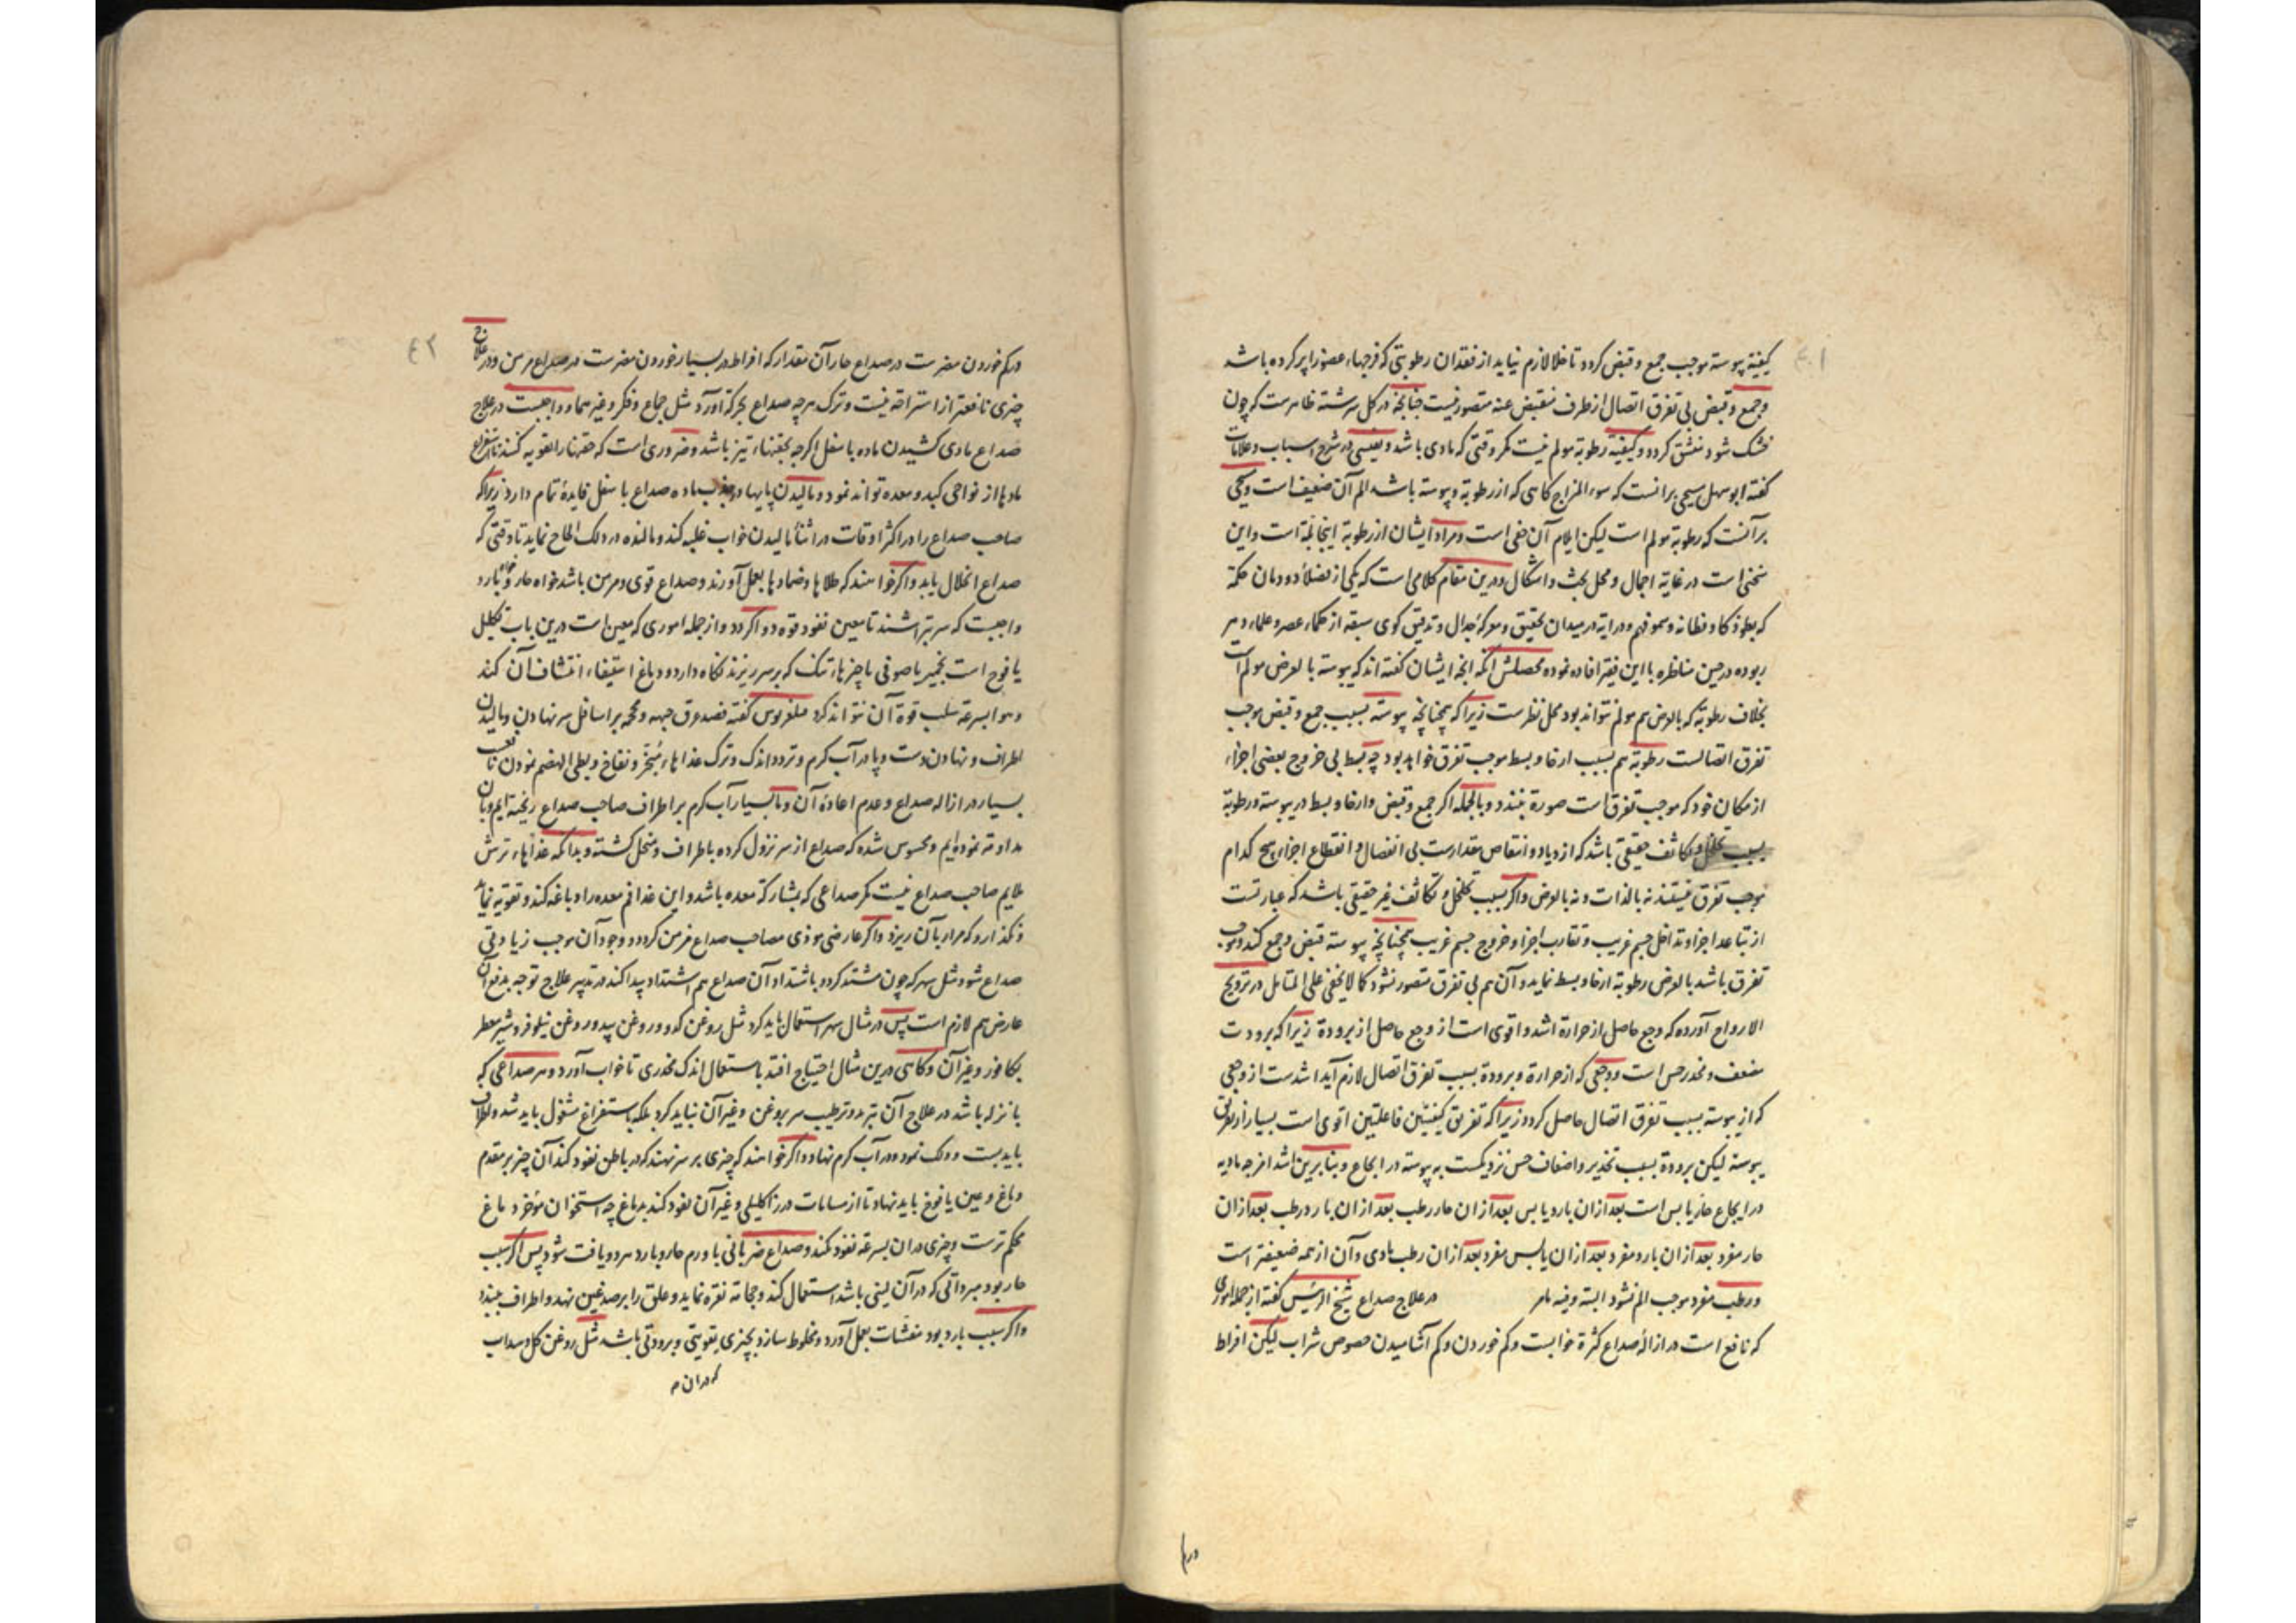 کیفیته یبوسته موجب جمع و قبض کردد تا خلا لازم نیاید از فقدان رطوبتی که فرجهاء عضو را پر کرده باشد
و جمع و قبض بی تفرق اتصال از طرف منقبض عنه متصور نیست چنانچه در کل سرشته ظاهرست که چون
خشک شود منشق کردد و کیفیته رطوبة مولم نیست مکر وقتی که مادی باشد و نفیسی در شرح اسباب و علامات
کفته ابو سهل مسیحی برانست که سوء المزاج کاهی که از رطوبة و یبوسته باشد الم آن ضعیف است و مسیحی
برآنست که رطوبة مولم است لیکن ایلام آن خفی است و مراد ایشان از رطوبة اینجا بلة است و این
سخنی است در غایة اجمال و محل بحث و اشکال و درین مقام کلامی است که یکی از فضلاء دودمان حکمة
که بعلو ذکا و فطانه و سمو فهم و درایة در میدان تحقیق و معرکۀ جدال و تدقیق کوی سبقه از حکماء عصر و علماء دهر
ربوده در حین مناظره با این فقیر افاده نموده محصلش آنکه انچه ایشان کفته اند که یبوسته بالعرض مولم است
بخلاف رطوبة که بالعرض هم مولم نتواند بود محل نظرست زیرا که همچنانچه یبوسته بسبب جمع و قبض موجب
تفرق اتصالست رطوبة هم بسبب ارخا و بسط موجب تفرق خواهد بود چه بسط بی خروج بعضی اجزاء
از مکان خود که موجب تفرق است صورة نبندد و بالجمله اکر جمع و قبض و ارخا و بسط در یبوسته و رطوبة
بسبب تخلخل و تکاثف حقیقی باشد که ازدیاد و انتقاص مقدارست بی انفصال و انقطاع اجزاء هیچ کدام
موجب تفرق نیستند نه بالذات و نه بالعرض و اکر بسبب تخلخل و تکاثف غیر حقیقی باشد که عبارتست
از تباعد اجزا و تداخل جسم غریب و تقارب اجزا و خروج جسم غریب همچنانچه یبوسته قبض و جمع کند و موجب
تفرق باشد بالعرض رطوبة ارخا و بسط نماید و آن هم بی تفرق متصور نشود کما لا یخفی علی المتامل در ترویح
الارواح آورده که وجع حاصل از حرارة اشد و اقوی است از وجع حاصل از برودة زیرا که برودت
مضعف و مخدر حس است و وجعی که از حرارة و برودة بسبب تفرق اتصال لازم آید اشدست از وجعی
که از یبوسته بسبب تفرق اتصال حاصل کردد زیرا که تفریق کیفیتین فاعلتین اقوی است بسیار از تفریق
یبوسته لیکن برودة بسبب تخدیر و اضعاف حس نزدیکست به یبوسته در ایجاع و بنابرین اشد امزجه مادیه
در ایجاع حار یابس است بعد ازان بارد یابس بعد ازان حار رطب بعد ازان بارد رطب بعد ازان
حار مفرد بعد ازان بارد مفرد بعد ازان یابس مفرد بعد ازان رطب مادی و آن از همه ضعیفتر است
و رطب مفرد موجب الم نشود البته و فیه ما مر در علاج صداع شیخ الرئیس کفته از جمله اموری
که نافع است در ازالۀ صداع کثرة خوابست و کم خوردن و کم آشامیدن خصوص شراب لیکن افراط
در کم
در کم خوردن مضرست در صداع حار آن مقدار که افراط در بسیار خوردن مضرست در صداع مزمن و در علاج
چیزی نافعتر از استراحة نیست و ترک هر چه صداع بحرکة آورد مثل جماع و فکر و غیر هما و واجبست در علاج
صداع مادی کشیدن ماده باسفل اکرچه بحقنهاء تیز باشد و ضروری است که حقنها را قویه کنند تا استفراغ
مادها از نواحی کبد و معده تواند نمود و مالیدن پایها در جذب ماده صداع باسفل فایدۀ تمام دارد زیرا که
صاحب صداع را در اکثر اوقات در اثناء مالیدن خواب غلبه کند و مالنده در دلک الحاح نماید تا وقتی که
صداع انحلال یابد و اکر خواهند که طلاها و ضمادها بعمل آورند و صداع قوی و مزمن باشد خواه حار و خواه بارد
واجبست که سر بتراشند تا معین نفوذ قوه دوا کردد و از جمله اموری که معین است درین باب تکلیل
یافوخ است بخمیر یا صوفی تا چیزهاء تنک که بر سر ریزند نکاه دارد و دماغ استیفاء انتشاف آن کند
و هوا بسرعة سلب قوة آن نتواند کرد فیلغریوس کفته فصد عرق جبهه و محجمه بر اسافل سر نهادن و مالیدن
اطراف و نهادن دست و پا در آب کرم و تردد اندک و ترک غذاهاء مبخر و نفاخ و بطی الهضم نمودن نافعست
بسیار در ازاله صداع و عدم اعادۀ آن و ما بسیار آب کرم بر اطراف صاحب صداع ریخته ایم و بآن
مداومة نموده ایم و محسوس شده که صداع از سر نزول کرده باطراف و منحل کشته و بدانکه غذاهاء ترش
ملایم صاحب صداع نیست مکر صداعی که بمشارکة معده باشد و این غذا فم معده را دباغه کند و تقویه نماید
و نکذارد که مرار بآن ریزد و اکر عارضی موذی مصاحب صداع مزمن کردد و وجود آن موجب زیادتی
صداع شود مثل سهر که چون مشتد کردد باشتداد آن صداع هم اشتداد پیدا کند در تدبیر علاج توجه بدفع آن
عارض هم لازم است پس در مثال سهر استعمال باید کرد مثل روغن کدو و روغن بید و روغن نیلوفر و شیر معطر
بکافور و غیر آن و کاهی درین مثال احتیاج افتد باستعمال اندک مخدری تا خواب آورد و هر صداعی که
با نزله باشد در علاج آن تبرید و ترطیب سر بروغن و غیر آن نباید کرد بلکه باستفراغ مشغول باید شد و اطراف
باید بست و دلک نمود و در آب کرم نهاد و اکر خواهند که چیزی بر سر نهند که در باطن نفوذ کند آن چیز بر مقدم
دماغ و عین یافوخ باید نهاد تا از مسامات درز اکلیلی و غیر آن نفوذ کند بدماغ چه استخوان مؤخر دماغ
محکم ترست و چیزی دران بسرعة نفوذ نکند و صداع ضربانی با ورم حار و بارد هر دو یافت شود پس اکر سبب
حار بود مبرداتی که در آن لینی باشد استعمال کند و حجامة نقره نماید و علق را بر صدغین نهد و اطراف ببندد
و اکر سبب بارد بود منفشات بعمل آورد و مخلوط سازد بچیزی تقویتی و برودتی باشد مثل روغن کل و سداب
که دران